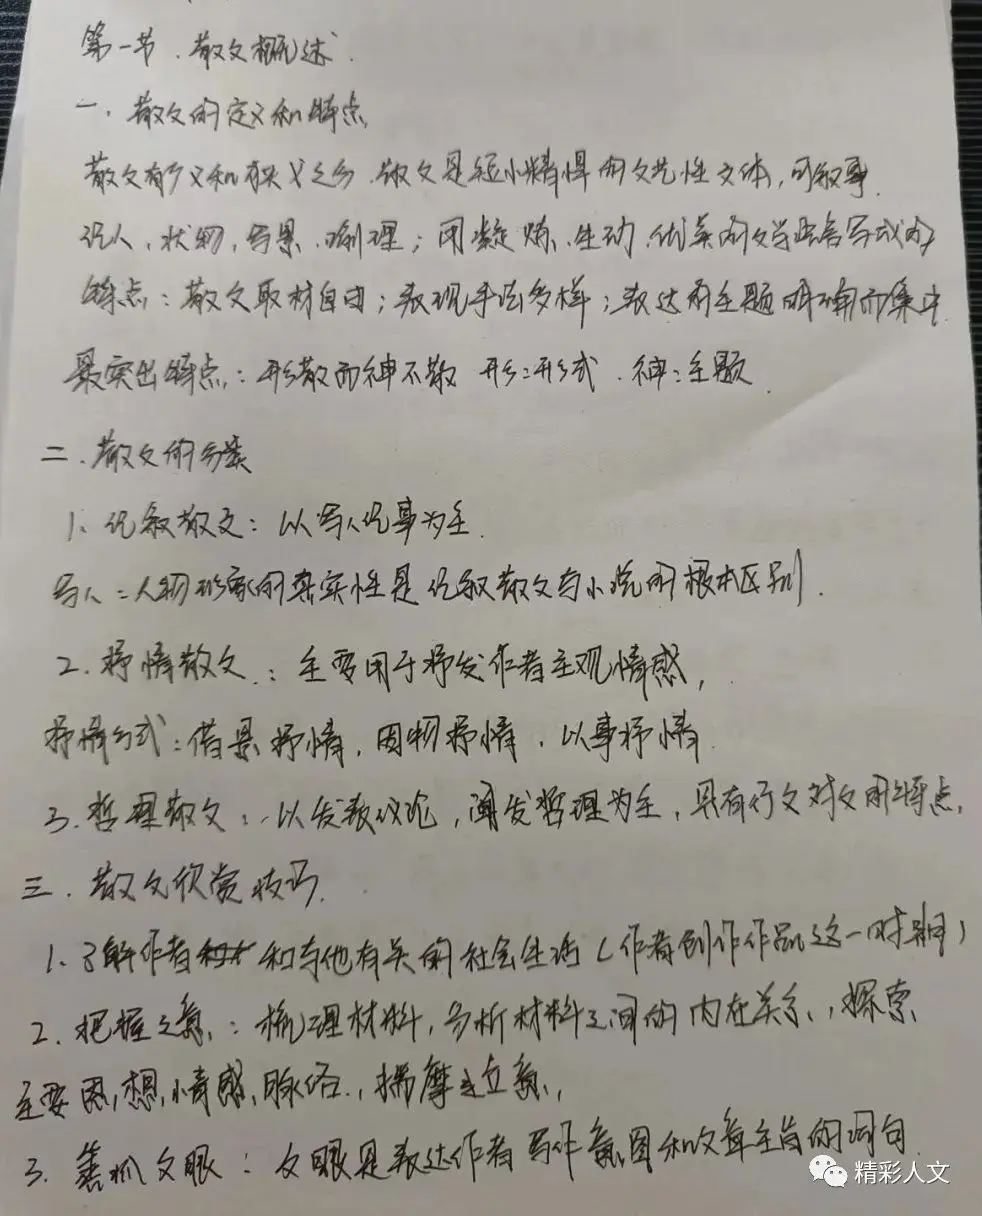 第一节.散文概述.
一.散文的定义和特点
散文有广义和狭义之分.散文是短小精悍的文艺性文体,可叙事.
记人,状物,写景.喻理;用凝炼、生动、优美的文学语言写成的
特点:散文取材自由;表现手法多样;表达的主题明确而集中.
最突出特点:形散而神不散 形:形式.神:主题
二.散文的分类
1、记叙散文:以写人记事为主.
写人:人物形象的真实性是记叙散文与小说的根本区别.
2.抒情散文:主要用于抒发作者主观情感,
抒情方式:借景抒情,因物抒情.以事抒情.
3.哲理散文:以发表议论,阐发哲理为主,具有行文对文的特点,
三.散文欣赏技巧.
1、了解作者和与他有关的社会生活(作者创作作品这一时期)
2.把握立意:梳理材料,分析材料之间的内在关系,探索
主要思想,情感,脉络,揣摩立意,
3.善抓文眼:文眼是表达作者写作意图和文章主旨的词句.
精彩人文